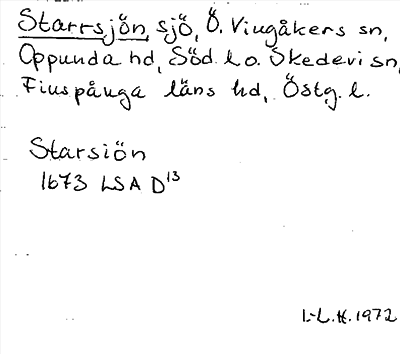 Starrsjön, sjö, Ö. Vingåkers sn,
Oppunda hd, Söd. l o. Skedevi sn,
Finspånga läns hd, Östg. l.
Starsiön
1673 LSA D¹³
I.-L.H. 1972